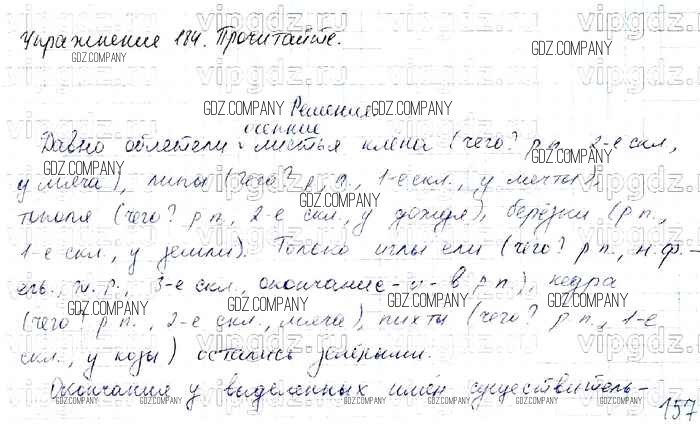 Упражнение 184. Прочитайте.
Решения.
осенние
Давно облетели листья клёна (чего? р.п., 2-е скл.,
у мяча), липы (чего? р.п., 1-е скл., у мечты),
тополя (чего? р.п., 2-е скл., у дождя), берёзки (р.п.,
1-е скл., у земли). Только иглы ели (чего? р.п., н.ф.-
ель, ж.р., 3-е скл., окончание -и- в р.п.), кедра
(чего? р.п., 2-е скл., мяча), пихты (чего? р.п., 1-е
скл., у козы) остались зелёными.
Окончания у выделенных имён существитель-
157
GDZ.COMPANY
vipgdz.ru